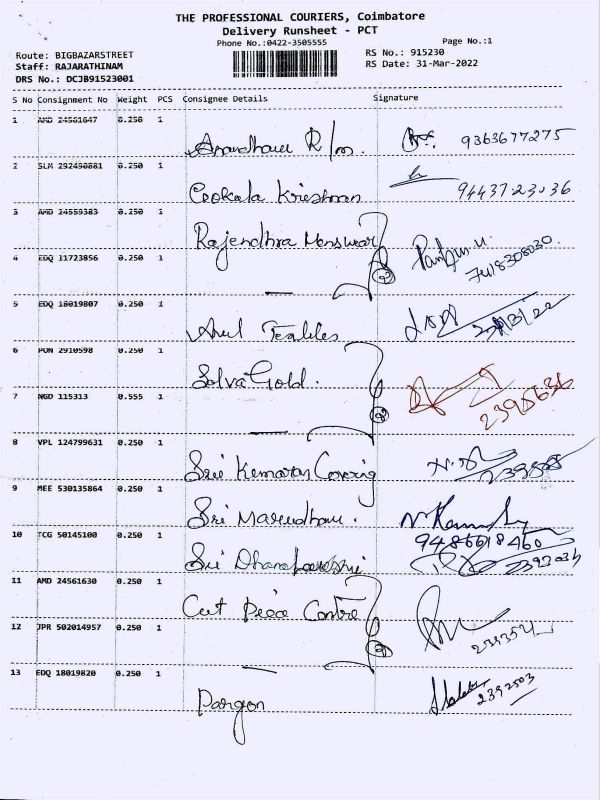 THE PROFESSIONAL COURIERS, Coimbatore
Delivery Runsheet - PCT
Phone No.:0422-3505555 Page No.:1
Route: BIGBAZARSTREET RS No.: 915230
Staff: RAJARATHINAM RS Date: 31-Mar-2022
DRS No.: DCJB91523001
S No Consignment No Weight PCS Consignee Details Signature
1 AMD 24561647 0.250 1
R/m. 9363677275
2 SLM 292490881 0.250 1
Cookala Krishnan 94437 23036
3 AMD 24559383 0.250 1
Rajendhra Menswear
4 EDQ 11723856 0.250 1
7418308030.
5 EDQ 18019807 0.250 1
Arul Textiles 31/3/22
6 PUN 2910598 0.250 1
Selva Gold.
7 NGD 115313 0.555 1
2395636
8 VPL 124799631 0.250 1
Sri Kumaran Covering
9 MEE 530135864 0.250 1
Sri Marudhar.
10 TCG 50145100 0.250 1
9486618460
Sri
11 AMD 24561630 0.250 1
Cut Piece Centre
12 JPR 502014957 0.250 1
13 EDQ 18019820 0.250 1
Pargon 2392503